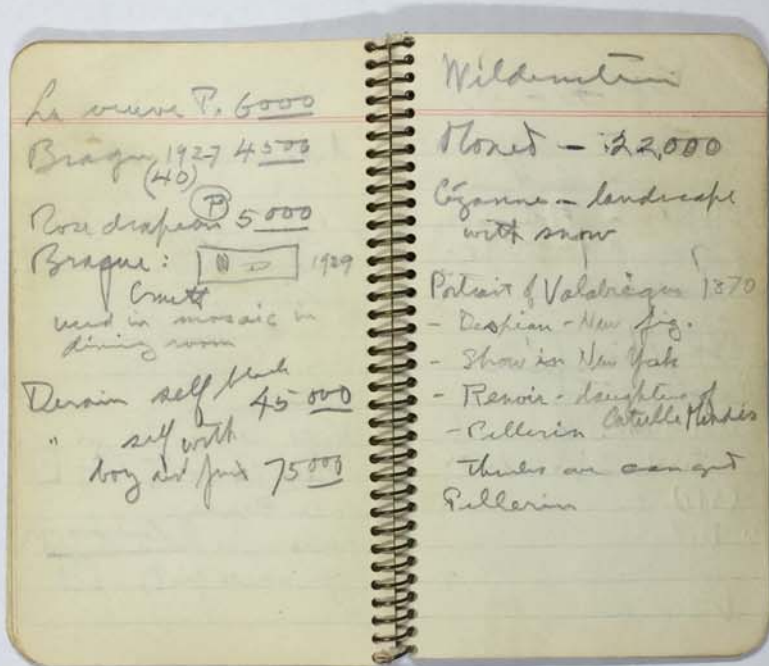 La veuve P. 6000
Braque 1927 4500
(40)
Rose drapeau (P) 5000
Braque: 1929
used in mosaic in
dining room
Derain self black
45000
" self with
boy and 75000
Wildenstein
Monet - 22,000
Cézanne - landscape
with snow
Portrait of Valabrègue 1870
- Despiau - New fig.
- Show in New York
- Renoir - daughters of
Catulle Mendès
- Pellerin
thinks we can get
Pellerin